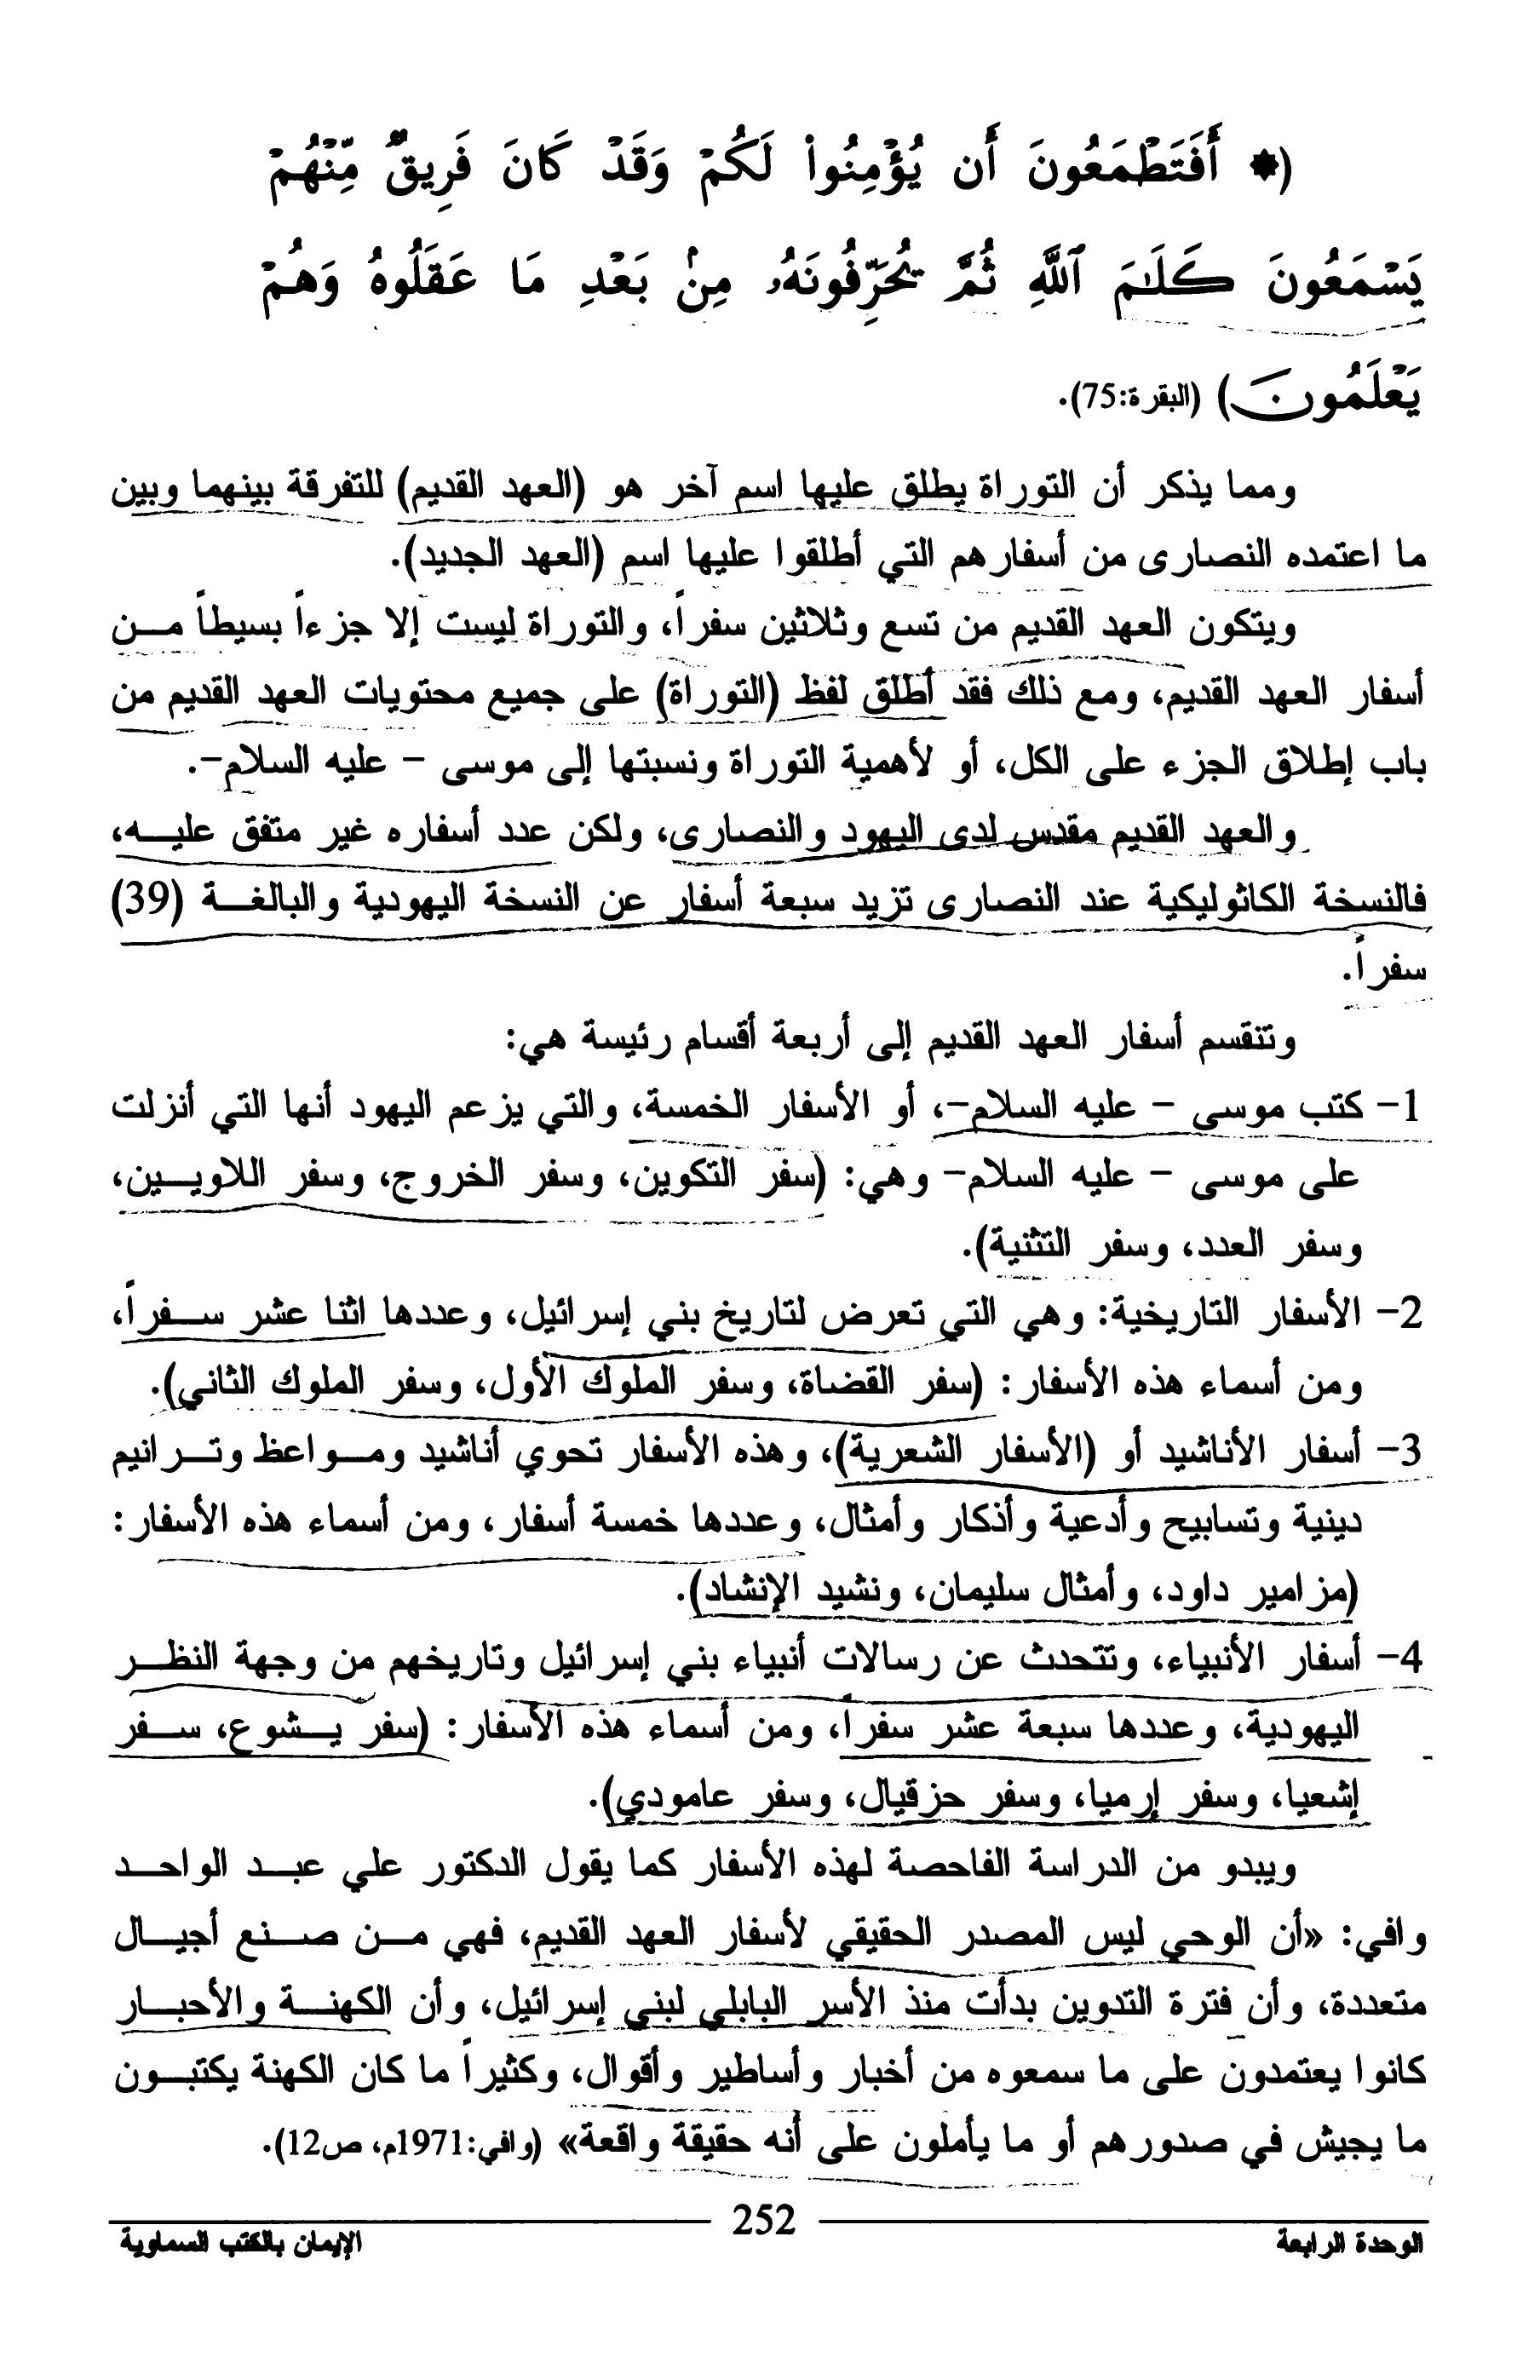 (۞ أَفَتَطْمَعُونَ أَن يُؤْمِنُوا۟ لَكُمْ وَقَدْ كَانَ فَرِيقٌ مِّنْهُمْ
يَسْمَعُونَ كَلَـٰمَ ٱللَّهِ ثُمَّ يُحَرِّفُونَهُۥ مِنۢ بَعْدِ مَا عَقَلُوهُ وَهُمْ
يَعْلَمُونَ) (البقرة:75).
ومما يذكر أن التوراة يطلق عليها اسم آخر هو (العهد القديم) للتفرقة بينهما وبين
ما اعتمده النصارى من أسفارهم التي أطلقوا عليها اسم (العهد الجديد).
ويتكون العهد القديم من تسع وثلاثين سفراً، والتوراة ليست إلا جزءاً بسيطاً مــن
أسفار العهد القديم، ومع ذلك فقد أطلق لفظ (التوراة) على جميع محتويات العهد القديم من
باب إطلاق الجزء على الكل، أو لأهمية التوراة ونسبتها إلى موسى – عليه السلام–.
والعهد القديم مقدس لدى اليهود والنصارى، ولكن عدد أسفاره غير متفق عليــه،
فالنسخة الكاثوليكية عند النصارى تزيد سبعة أسفار عن النسخة اليهودية والبالغــة (39)
سفراً.
وتنقسم أسفار العهد القديم إلى أربعة أقسام رئيسة هي:
1– كتب موسى – عليه السلام–، أو الأسفار الخمسة، والتي يزعم اليهود أنها التي أنزلت
على موسى – عليه السلام– وهي: (سفر التكوين، وسفر الخروج، وسفر اللاويــين،
وسفر العدد، وسفر التثنية).
2– الأسفار التاريخية: وهي التي تعرض لتاريخ بني إسرائيل، وعددها اثنا عشر ســفراً،
ومن أسماء هذه الأسفار: (سفر القضاة، وسفر الملوك الأول، وسفر الملوك الثاني).
3– أسفار الأناشيد أو (الأسفار الشعرية)، وهذه الأسفار تحوي أناشيد ومــواعظ وتــرانيم
دينية وتسابيح وأدعية وأذكار وأمثال، وعددها خمسة أسفار، ومن أسماء هذه الأسفار:
(مزامير داود، وأمثال سليمان، ونشيد الإنشاد).
4– أسفار الأنبياء، وتتحدث عن رسالات أنبياء بني إسرائيل وتاريخهم من وجهة النظــر
اليهودية، وعددها سبعة عشر سفراً، ومن أسماء هذه الأسفار: (سفر يــشوع، ســفر
إشعيا، وسفر إرميا، وسفر حزقيال، وسفر عامودي).
ويبدو من الدراسة الفاحصة لهذه الأسفار كما يقول الدكتور علي عبــد الواحــد
وافي: «أن الوحي ليس المصدر الحقيقي لأسفار العهد القديم، فهي مــن صــنع أجيــال
متعددة، وأن فترة التدوين بدأت منذ الأسر البابلي لبني إسرائيل، وأن الكهنــة والأحبــار
كانوا يعتمدون على ما سمعوه من أخبار وأساطير وأقوال، وكثيراً ما كان الكهنة يكتبــون
ما يجيش في صدورهم أو ما يأملون على أنه حقيقة واقعة» (وافي:1971م، ص12).
252
الوحدة الرابعة
الإيمان بالكتب السماوية